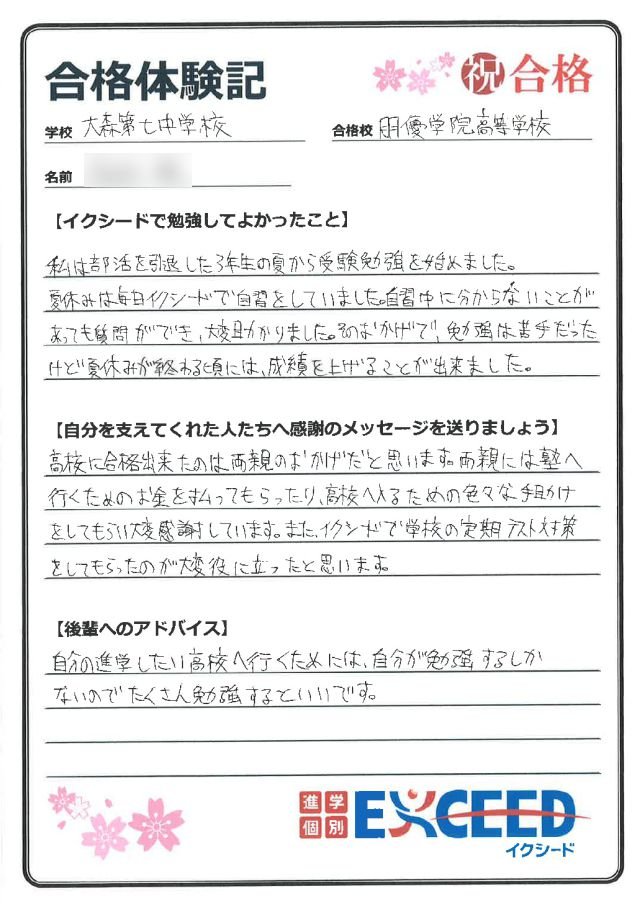 合格体験記
祝合格
学校 大森第七中学校
合格校 朋優学院高等学校
名前
【イクシードで勉強してよかったこと】
私は部活を引退した3年生の夏から受験勉強を始めました。
夏休みは毎日イクシードで自習をしていました。自習中に分からないことが
あっても質問ができ、大変助かりました。そのおかげで、勉強は苦手だった
けど夏休みが終わる頃には、成績を上げることが出来ました。
【自分を支えてくれた人たちへ感謝のメッセージを送りましょう】
高校に合格出来たのは両親のおかげだと思います。両親には塾へ
行くためのお金を払ってもらったり、高校へ入るための色々な手助け
をしてもらい大変感謝しています。また、イクシードで学校の定期テスト対策
をしてもらったのが大変役に立ったと思います。
【後輩へのアドバイス】
自分の進学したい高校へ行くためには、自分が勉強するしか
ないのでたくさん勉強するといいです。
進学
個別
EXCEED
イクシード